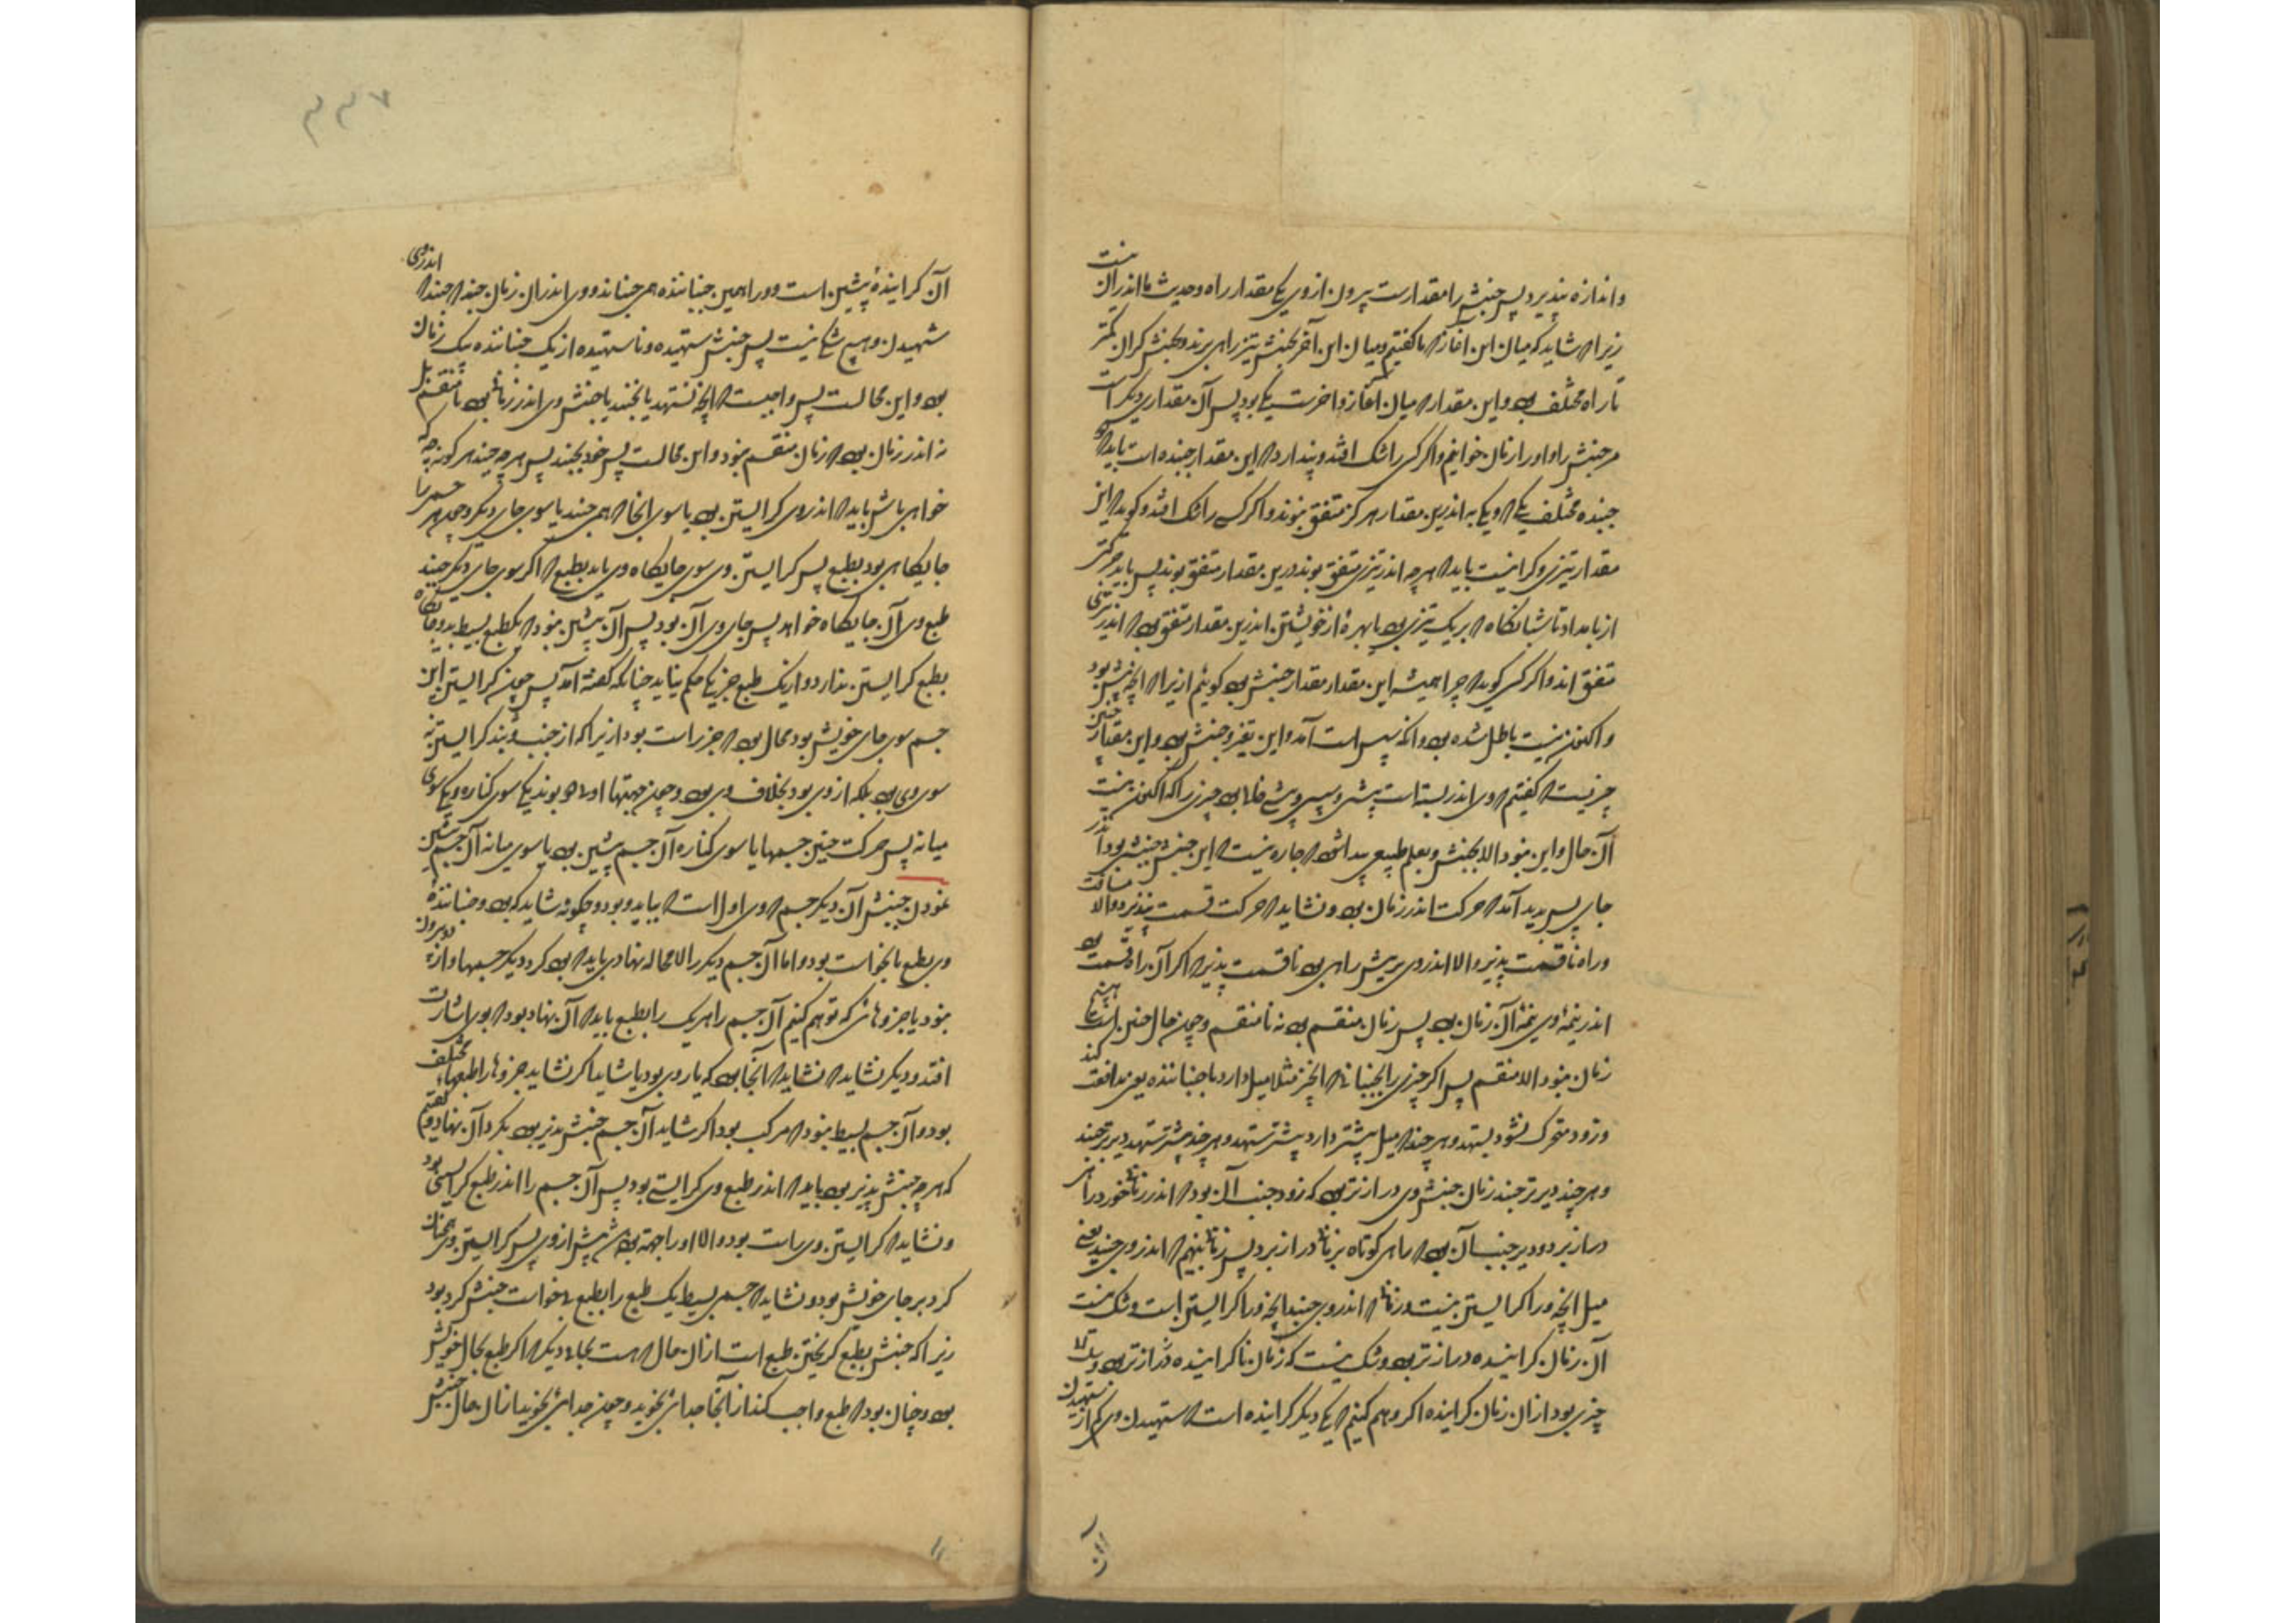 و اندازه پذیرد پس جنبش را مقدارست بیرون از وی یکی مقدار راه و حدیث ما اندر آن نیست
زیرا که شاید که میان این آغاز که ما گفتیم و میان این آخر بجنبش تیز راهی برند و بجنبش گران کمتر
تا راه مختلف بود و این مقدار که میان آغاز و آخرست یکی بود پس آن مقداری دیگر است
مر جنبش را و او را زمان خوانیم و اگر کسی را شک افتد و پندارد که این مقدار جنبنده است باید که
جنبنده مختلف یکی که و یکی به اندرین مقدار هرگز متفق نبوند و اگر کسی را شک افتد و گوید که این
مقدار تیزی و گرانیست باید که هرچه اندر تیزی متفق بوند درین مقدار متفق بوند پس باید حرکتی
از بامداد تا شبانگاه که بر یک تیزی بود با بهره از خویشتن اندرین مقدار متفق بود که اندر تیزی
متفق اند و اگر کسی گوید که چرا همیشه این مقدار مقدار جنبش بود گوییم ازیرا که آنچه پیش بود
و اکنون نیست باطل شده بود و آنکه سپس است آمد و این تغیر و جنبش بود و این مقدار
چیزیست که گفتیم که وی اندر بسته است پیشی و سپسی و پیشی حال بود چیزی را که اکنون نیست
آن حال و این نبود الا بجنبش و بعلم طبیعی پیدا شود که چاره نیست که این جنبش جنبش بود اندر
جای پس پدید آمد که حرکت اندر زمان بود و نشاید که حرکت قسمت نپذیرد و الا مسافت
و راه نا قسمت پذیر و الا اندر وی بریش راهی بود نا قسمت پذیر که اگر آن راه قسمت بود
اندر نیمه وی نیمه آن زمان بود پس زمان منقسم بود نه نا منقسم و چون حال چنین است
زمان نبود الا منقسم پس اگر چیزی را بجنبانی که آنچیز مثلا میل دارد با جنباننده یعنی مدافعت کند
و زود متحرک نشود بستهد و هر چند که میل بیشتر دارد بیشتر ستهد و هر چند بیشتر ستهد دیرتر جنبد
و هر چند دیرتر جنبد زمان جنبش وی درازتر بود که زود جنب آن بود که اندر زمانی خورد راهی
دراز برد و دیر جنب آن بود که راهی کوتاه بزمانی دراز برد پس زمانی بنهیم که اندر وی جنبد بعضی
میل آنچه ورا گراییستن نیست و زمانی که اندر وی جنبد آنچه ورا گراییستن است و شک نیست
آن زمان گراینده درازتر بود و شک نیست که زمان نا گراینده درازتر بود
چیزی بود از آن زمان گراینده اگر وهم کنیم که یکی دیگر گراینده است که ستهیدن وی کم از ستهیدن
آن
۷۳۳
آن گراینده پیشین است و ورا همین جنباننده همی جنباند و وی اندر آن زمان جنبد که جنبد اندر وی
شهیدن و هیچ شکی نیست پس جنبش ستهیده و نا ستهیده از یک جنباننده بیک زمان
بود و این محالست پس واجبست که آنچه نستهد یا نجنبد یا جنبش وی اندر زمانی بود نا منقسم یا
نه اندر زمان بود که زمان منقسم نبود و این محالست پس خود نجنبد پس هرچه جنبد هرگونه که
خواهی باش باید که اندر وی گراییستن بود یا سوی آنجا که همی جنبد یا سوی جای دیگر و چون هر جسمی را
جایگاهی بود بطبع پس گراییستن وی سوی جایگاه وی باید بطبع که اگر سوی جای دیگر جنبد
طبع وی آن جایگاه خواهد پس جای وی آن بود پس آن پیشین نبود که یک طبع بسیط بدو جایگاه
بطبع گراییستن ندارد و از یک طبع جز یکی حکم نیاید چنانکه گفته آمد پس چون گراییستن این
جسم سوی جای خویش بود محال بود که جز راست بود ازیرا که از جنب و بند گراییستن نه
سوی وی بود بلکه از وی بود بخلاف وی بود و چون جهتها اول دو بوند یکی سوی کناره و یکی سوی
میانه پس حرکت چنین جسمها یا سوی کناره آن جسم پیشین بود یا سوی میانه آن جسم پیشین
نمودن جنبش آن دیگر جسم که وی اول است که بباید و بود و چگونه شاید که بود و جنباننده
وی بطبع یا بخواست بود و اما آن جسم دیگر را لا محاله نهادی باید که بود گرد دیگر جسمها و از بیرون
نبود یا جزوهائی که توهم کنیم آن جسم را هر یک را بطبع باید که آن نهاد بود که بوی اشارت
افتد و دیگر نشاید که نشاید که آنجا بود که یار وی بود یا شاید اگر نشاید جزوها را طبعهاء مختلف
بود و آن جسم بسیط نبود که مرکب بود اگر شاید آن جسم جنبش پذیر بود بگرد آن نهاد و گفتیم
که هرچه جنبش پذیر بود باید که اندر طبع وی گرایستنی بود پس آن جسم را اندر طبع گرایستنی بود
و نشاید که گراییستن وی راست بود و الا او را جهتی بود پیش از وی پس گراییستن وی چنان
گرد بر جای خویش بود و نشاید که جسمی بسیط یک طبع را بطبع بی خواست جنبش گرد بود
زیرا که جنبش بطبع گریختن طبع است از آن حال که هست بحالی دیگر که اگر طبع بحال خویش
بود و چنان بود که طبع واجب کند از آنجا جدائی نجوید و چون جدائی نجوید از آن حال جنبش